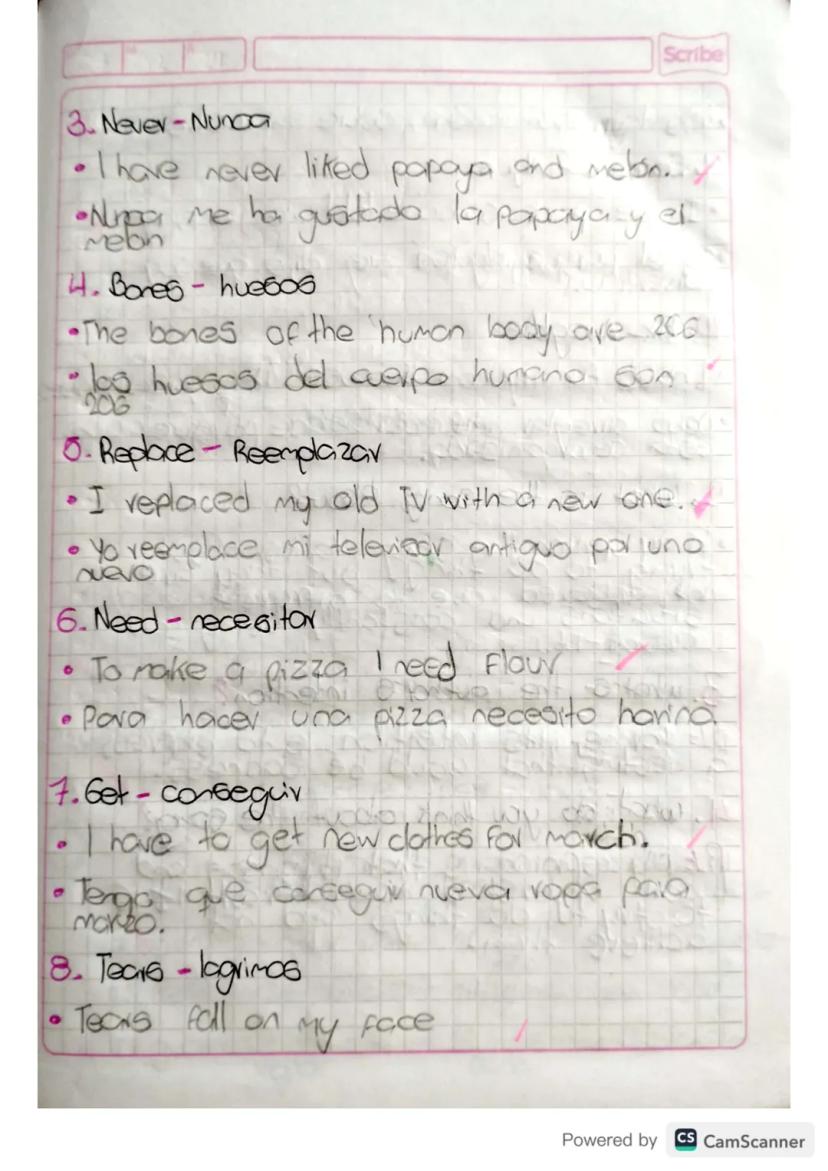 Scribe
3. Never - Nunca
• I have never liked papaya and melon.
• Nunca me ha gustado la papaya y el
melon
4. Bones - huesos
• The bones of the human body are 206
• los huesos del cuerpo humano son
206
5. Replace - Reemplazar
• I replaced my old TV with a new one.
• Yo reemplace mi televisor antiguo por uno
nuevo
6. Need - necesitar
• To make a pizza I need Flour
• Para hacer una pizza necesito harina
7. Get - conseguir
• I have to get new clothes for march.
• Tengo que conseguir nueva ropa para
marzo.
8. Tears - lagrimas
• Tears fall on my face
Powered by CS CamScanner